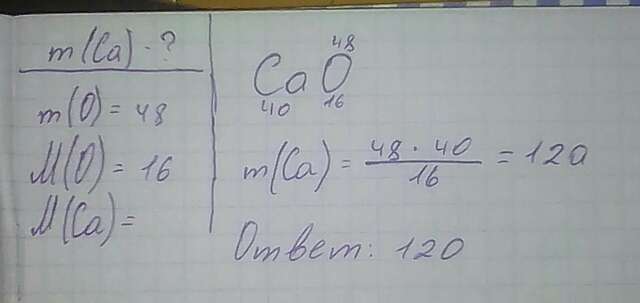 m(Ca) - ?
m(O) = 48
M(O) = 16
M(Ca) =
48
CaO
40 16
m(Ca) = 48 · 40 / 16 = 120
Ответ: 120